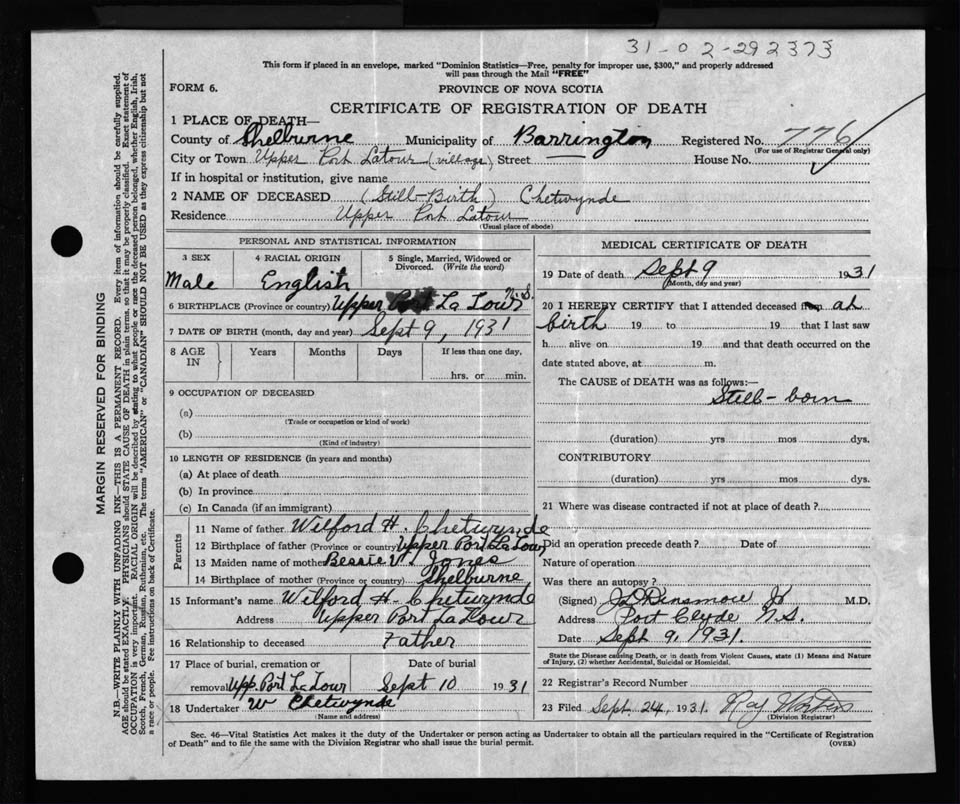 31-02-292373
This form if placed in an envelope, marked "Dominion Statistics—Free, penalty for improper use, $300," and properly addressed
will pass through the Mail "FREE"
FORM 6.
PROVINCE OF NOVA SCOTIA
CERTIFICATE OF REGISTRATION OF DEATH
1 PLACE OF DEATH—
County of Shelburne Municipality of Barrington Registered No. 776
(For use of Registrar General only)
City or Town Upper Port Latour (village) Street House No.
If in hospital or institution, give name
2 NAME OF DECEASED (Still-Birth) Chetwynde
Residence Upper Port Latour
(Usual place of abode)
PERSONAL AND STATISTICAL INFORMATION
3 SEX 4 RACIAL ORIGIN 5 Single, Married, Widowed or
Divorced. (Write the word)
Male English
6 BIRTHPLACE (Province or country) Upper Port La Tour N.S.
7 DATE OF BIRTH (month, day and year) Sept 9, 1931
8 AGE IN Years Months Days If less than one day,
hrs. or min.
9 OCCUPATION OF DECEASED
(a)
(Trade or occupation or kind of work)
(b)
(Kind of industry)
10 LENGTH OF RESIDENCE (in years and months)
(a) At place of death
(b) In province
(c) In Canada (if an immigrant)
Parents
11 Name of father Wilford H. Chetwynde
12 Birthplace of father (Province or country) Upper Port La Tour
13 Maiden name of mother Bessie V. Jones
14 Birthplace of mother (Province or country) Shelburne
15 Informant's name Wilford H. Chetwynde
Address Upper Port La Tour
16 Relationship to deceased Father
17 Place of burial, cremation or Date of burial
removal Upp. Port La Tour Sept 10 1931
18 Undertaker W Chetwynde
(Name and address)
MEDICAL CERTIFICATE OF DEATH
19 Date of death Sept 9 1931
(Month, day and year)
20 I HEREBY CERTIFY that I attended deceased from at
birth 19 to 19 that I last saw
h alive on 19 and that death occurred on the
date stated above, at m.
The CAUSE OF DEATH was as follows:—
Still-born
(duration) yrs mos dys.
CONTRIBUTORY
(duration) yrs mos dys.
21 Where was disease contracted if not at place of death?
Did an operation precede death? Date of
Nature of operation
Was there an autopsy?
(Signed) Dinsmore M.D.
Address Port Clyde N.S.
Date Sept 9, 1931.
State the Disease causing Death, or in death from Violent Causes, state (1) Means and Nature
of Injury, (2) whether Accidental, Suicidal or Homicidal.
22 Registrar's Record Number
23 Filed Sept. 24, 1931. Ray
(Division Registrar)
Sec. 46—Vital Statistics Act makes it the duty of the Undertaker or person acting as Undertaker to obtain all the particulars required in the "Certificate of Registration
of Death" and to file the same with the Division Registrar who shall issue the burial permit. (OVER)
MARGIN RESERVED FOR BINDING
N.B.—WRITE PLAINLY WITH UNFADING INK—THIS IS A PERMANENT RECORD. Every item of information should be carefully supplied.
AGE should be stated EXACTLY. PHYSICIANS should STATE CAUSE OF DEATH in plain terms, so that it may be properly classified. Exact statement of
OCCUPATION is very important. RACIAL ORIGIN will be described by stating to what people or race the deceased person belonged, whether English, Irish,
Scotch, French, German, Russian, Ruthenian, etc. The terms "AMERICAN" or "CANADIAN" SHOULD NOT BE USED as they express citizenship but not
a race or people. See instructions on back of Certificate.